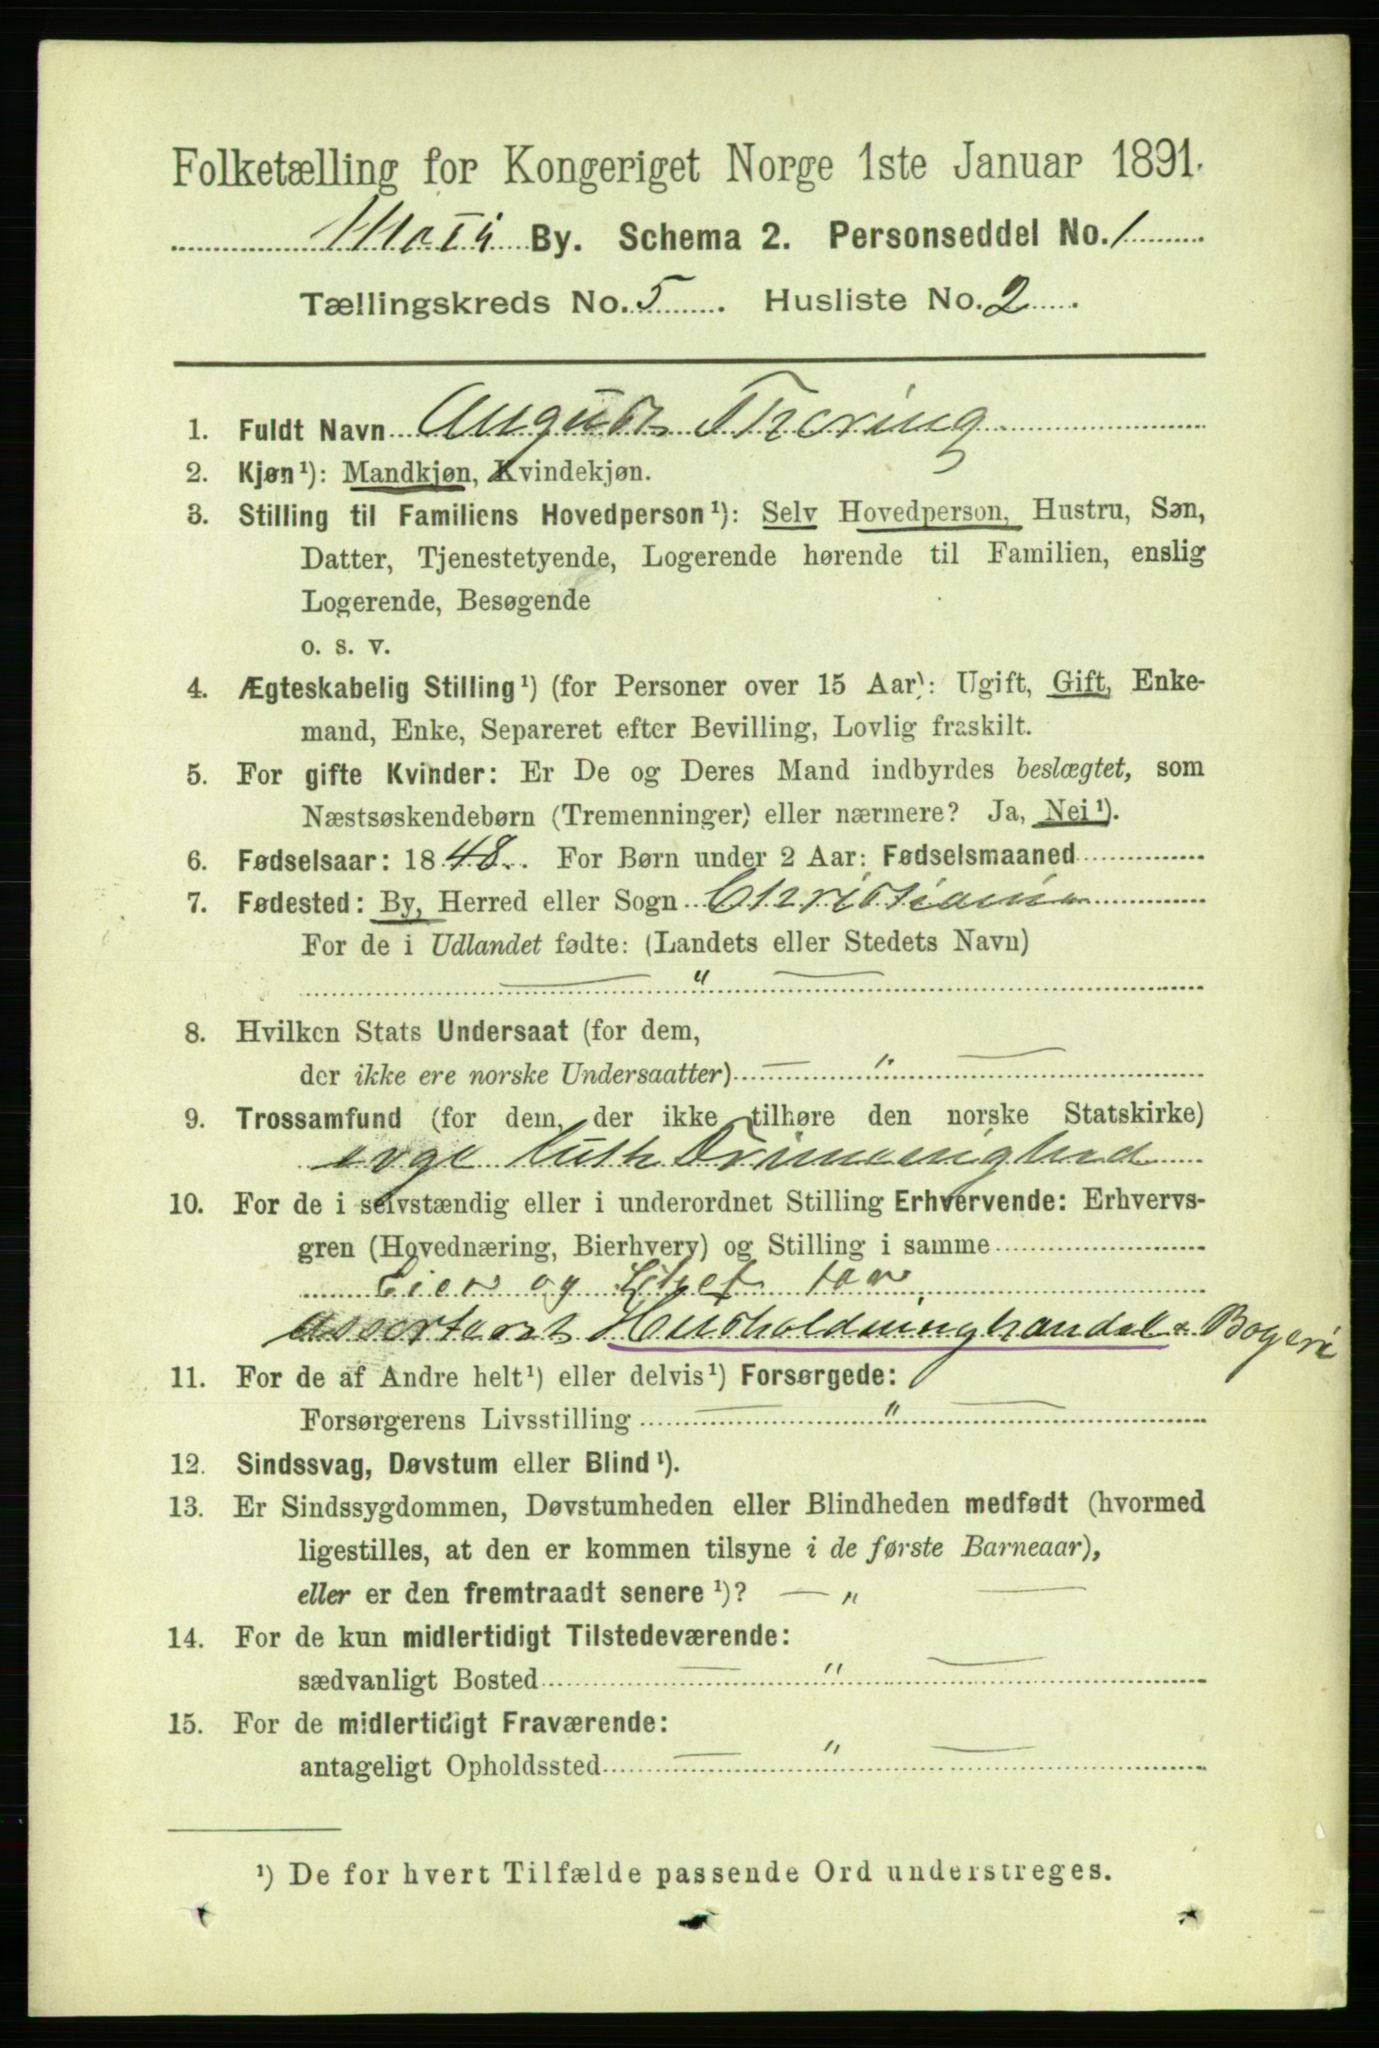 Folketælling for Kongeriget Norge 1ste Januar 1891.
Moss By. Schema 2. Personseddel No. 1
Tællingskreds No. 5. Husliste No. 2.
1. Fuldt Navn August Thoring
2. Kjøn¹): Mandkjøn, Kvindekjøn.
3. Stilling til Familiens Hovedperson¹): Selv Hovedperson, Hustru, Søn,
Datter, Tjenestetyende, Logerende hørende til Familien, enslig
Logerende, Besøgende
o. s. v.
4. Ægteskabelig Stilling¹) (for Personer over 15 Aar): Ugift, Gift, Enke-
mand, Enke, Separeret efter Bevilling, Lovlig fraskilt.
5. For gifte Kvinder: Er De og Deres Mand indbyrdes beslægtet, som
Næstsøskendebørn (Tremenninger) eller nærmere? Ja, Nei¹).
6. Fødselsaar: 1848. For Børn under 2 Aar: Fødselsmaaned
7. Fødested: By, Herred eller Sogn Christiania
For de i Udlandet fødte: (Landets eller Stedets Navn)
— " —
8. Hvilken Stats Undersaat (for dem,
der ikke ere norske Undersaatter) — " —
9. Trossamfund (for dem, der ikke tilhøre den norske Statskirke)
evgl luth Frimenighed
10. For de i selvstændig eller i underordnet Stilling Erhvervende: Erhvervs-
gren (Hovednæring, Bierhverv) og Stilling i samme
Eier og Chef for
assorteret Husholdninghandel & Bageri
11. For de af Andre helt¹) eller delvis¹) Forsørgede:
Forsørgerens Livsstilling — " —
12. Sindssvag, Døvstum eller Blind¹).
13. Er Sindssygdommen, Døvstumheden eller Blindheden medfødt (hvormed
ligestilles, at den er kommen tilsyne i de første Barneaar),
eller er den fremtraadt senere¹)? — " —
14. For de kun midlertidigt Tilstedeværende:
sædvanligt Bosted — " —
15. For de midlertidigt Fraværende:
antageligt Opholdssted — " —
¹) De for hvert Tilfælde passende Ord understreges.